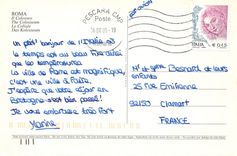 ROMA
Il Colosseo
The Colosseum
Le Colisée
Das Kolosseum
PESCARA CMP
Poste
ITALIA
€ 0,45
Un petit bonjour de l'Italie où
le temps est au beau fixe ainsi
que les températures.
La ville de Rome est magnifique,
c'est une ville à faire.
J'espère que votre séjour en
Bretagne s'est bien passé!
Je vous embrasse très fort
Marine
Mr et Mme Besnard et leurs
enfants
25 rue
92140 Clamart
FRANCE